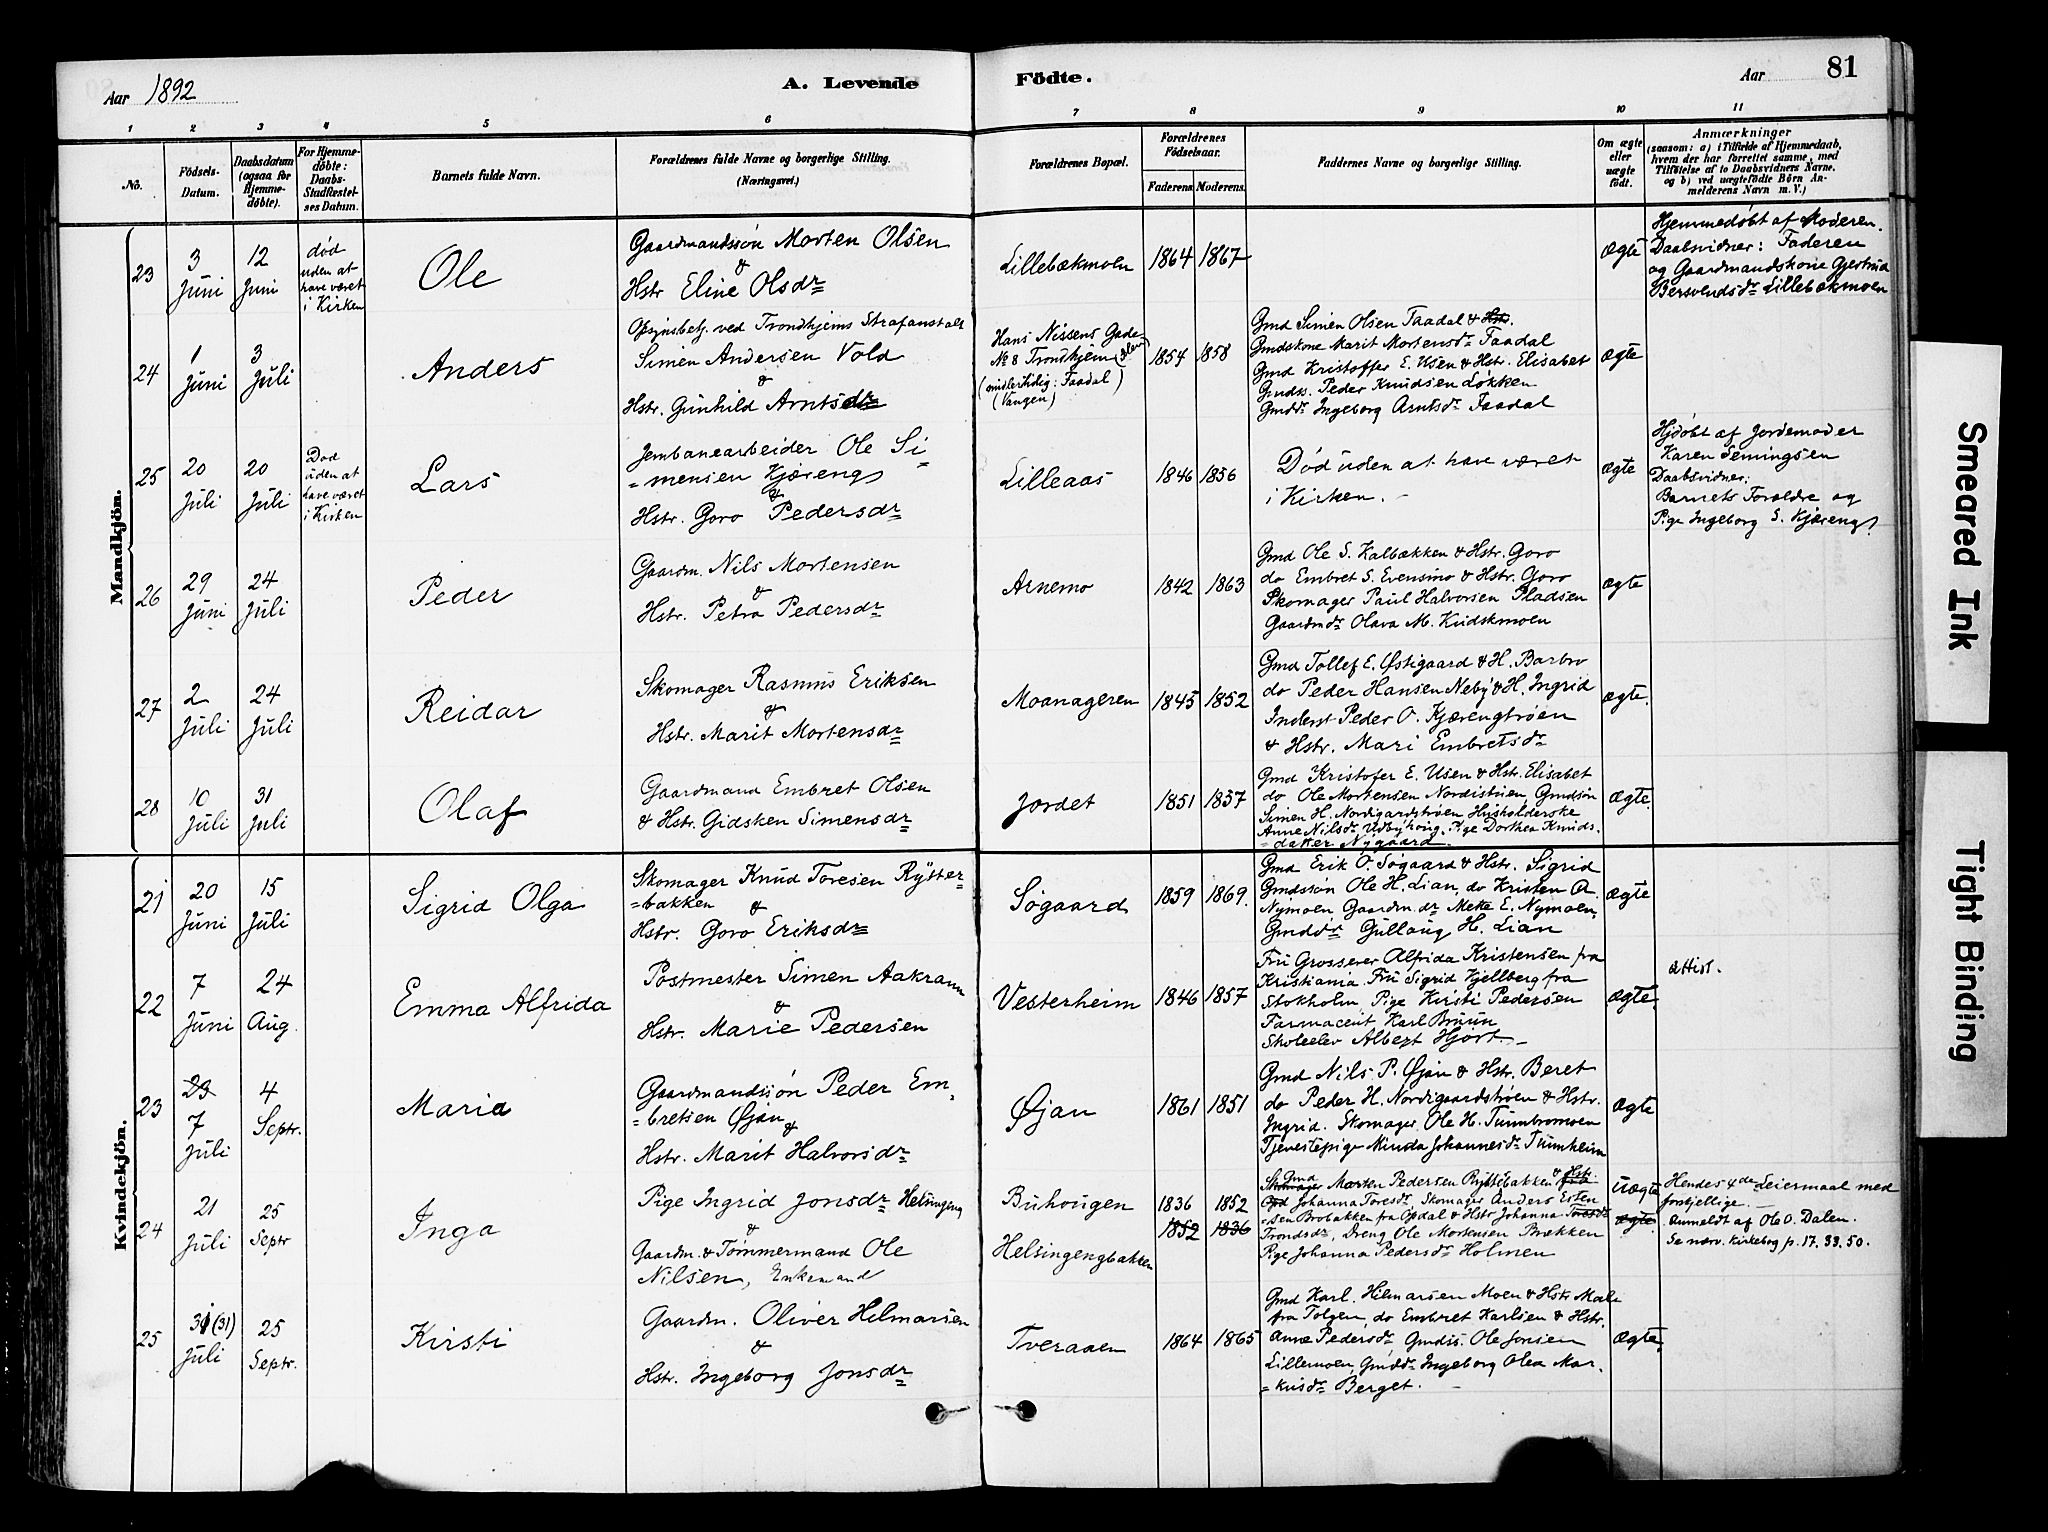 Aar 1892
A. Levende
Födte.
Aar
81
1 2 3 4 5 6 7 8 9 10 11
No.
Födsels-
Datum.
Daabsdatum
(ogsaa for
Hjemme-
döbte).
For Hjemme-
döbte:
Daabs-
Stadfæstel-
ses Datum.
Barnets fulde Navn.
Forældrenes fulde Navne og borgerlige Stilling.
(Næringsvei.)
Forældrenes Bopæl.
Forældrenes
Födselsaar.
Faderens. Moderens.
Faddernes Navne og borgerlige Stilling.
Om ægte
eller
uægte
födt.
Anmærkninger
(saasom: a) i Tilfælde af Hjemmedaab,
hvem der har forrettet samme, med
Tilföielse af to Daabsvidners Navne,
og b) ved uægtefödte Börn An-
melderens Navn m. V.)
Mandkjön.
23
3
Juni
12
Juni
død
uden at
have været
i Kirken
Ole
Gaardmandssøn Morten Olsen
&
Hstr Eline Olsdr
Lillebækmoen
1864 1867
Ægte
Hjemmedøbt af Moderen.
Daabsvidner: Faderen
og Gaardmandskone Gjertrud
Bersvendsdr Lillebækmoen
24
1
Juni
3
Juli
Anders
Opsynsbetj. ved Trondhjems Strafanstalt
Simen Andersen Vold
&
Hstr. Gunhild Arntsdr
Hans Nissens Gade
No 8 Trondhjem
(midlertidig: Faadal)
(Vangen)
1854 1858
Gmd Simen Olsen Faadal & Hstr.
Gmdskone Marit Mortensdr Faadal
Gmd Kristoffer E. Usen & Hstr. Elisabet
Gmdss. Peder Knudsen Løkken
Gmddr Ingeborg Arntsdr Faadal
Ægte
25
20
Juli
20
Juli
Død
uden at
have været
i Kirken
Lars
Jernbanearbeider Ole Si-
=mensen Kjæreng
&
Hstr. Goro Pedersdr
Lilleaas
1846 1856
Død uden at have været
i Kirken. -
Ægte
Hjdøbt af Jordemoder
Karen Semingsen
Daabsvidner:
Barnets Forældre og
Pige Ingeborg S. Kjæreng.
26
29
Juni
24
Juli
Peder
Gaardm. Nils Mortensen
&
Hstr. Petra Pedersdr
Arnemo
1842 1863
Gmd Ole S. Kalbækken & Hstr. Goro
do Embret S. Evensmo & Hstr. Goro
Skomager Paul Halvorsen Pladsen
Gaardmdr Olava M. Kudskmoen
Ægte
27
2
Juli
24
Juli
Reidar
Skomager Rasmus Eriksen
&
Hstr. Marit Mortensdr
Moanageren
1845 1852
Gmd Tollef E. Østigaard & H. Barbro
do Peder Hansen Neby & H. Ingrid
Inderst Peder O. Kjærengtrøen
& Hstr. Mari Embretsdr
Ægte.
28
10
Juli
31
Juli
Olaf
Gaardmand Embret Olsen
& Hstr. Gidsken Simensdr
Jordet
1851 1857
Gmd Kristofer E. Usen & Hstr. Elisabet
do Ole Mortensen Nordistuen, Gmdsøn
Simen H. Nordigardstrøen Husholderske
Anne Nilsdr Udbyhaug. Pige Dorthea Knuds-
=datter Nygaard.
Ægte.
Kvindekjön.
21
20
Juni
15
Juli
Sigrid Olga
Skomager Knud Toresen Ryster-
=bakken
&
Hstr. Goro Eriksdr
Søgaard
1859 1869.
Gmd Erik O. Søgaard & Hstr. Sigrid
Gmdssøn Ole H. Lian, do Kristen A.
Nymoen Gaardm.dr Mette E. Nymoen,
Gmddr Gullaug H. Lian
Ægte
22
7
Juni
24
Aug.
Emma Alfrida
Postmester Simen Aakrann
&
Hstr. Marie Pedersen
Vesterheim
1846 1857
Fru Grosserer Alfrida Kristensen fra
Kristiania Fru Sigrid Kjellberg fra
Stokholm Pige Kirsti Pedersen
Farmaceut Karl Bruun
Skoleelev Albert Hjort. -
Ægte.
attist.
23
23
7
Juli
4
Septr.
Maria
Gaardmandssøn Peder Em-
=bretsen Øjan
&
Hstr. Marit Halvorsdr
Øjan
1861 1851
Gmd Nils P. Øjan & Hstr. Beret
do Peder H. Nordigaardstrøen & Hstr.
Ingrid. Skomager Ole H. Tunnbromoen
Tjenestepige Minda Johannesdr Tumheim
Ægte
24
21
Juli
25
Septr
Inga
Pige Ingrid Jonsdr Helsingeng
&
Gaardm. & Tømmermand Ole
Nilsen, Enkemand
Buhougen
Helsingengbakken
1836 1852
1852 1836
Gmd Morten Pedersen Rystebakken & Hstr.
Johanna Toresdr Skomager Anders Esten
=sen Brobakken fra Opdal & Hstr Johanna Toresdr
Trondsdr, Dreng Ole Mortensen Brækken
Pige Johanna Pedersdr Holmen
Uægte
ægte.
Hendes 4de Leiermaal med
forskjellige. -
Anmeldt af Ole O. Dalen.
Se nærv. Kirkebog p. 17. 33. 50.
25
31 (31)
Juli
25
Septr.
Kirsti
Gaardm. Oliver Hilmarsen
&
Hstr. Ingeborg Jonsdr
Tveraaen
1864 1865
Gmd Karl. Hilmarsen Moen & Hstr Mali
fra Tolgen, do Embret Karlsen & Hstr.
Anne Pedersdr Gmdss. Ole Jonsen
Lillemoen, Gmddr Ingeborg Olea Mar-
=kusdr Berget. -
Ægte.
Smeared Ink
Tight Binding